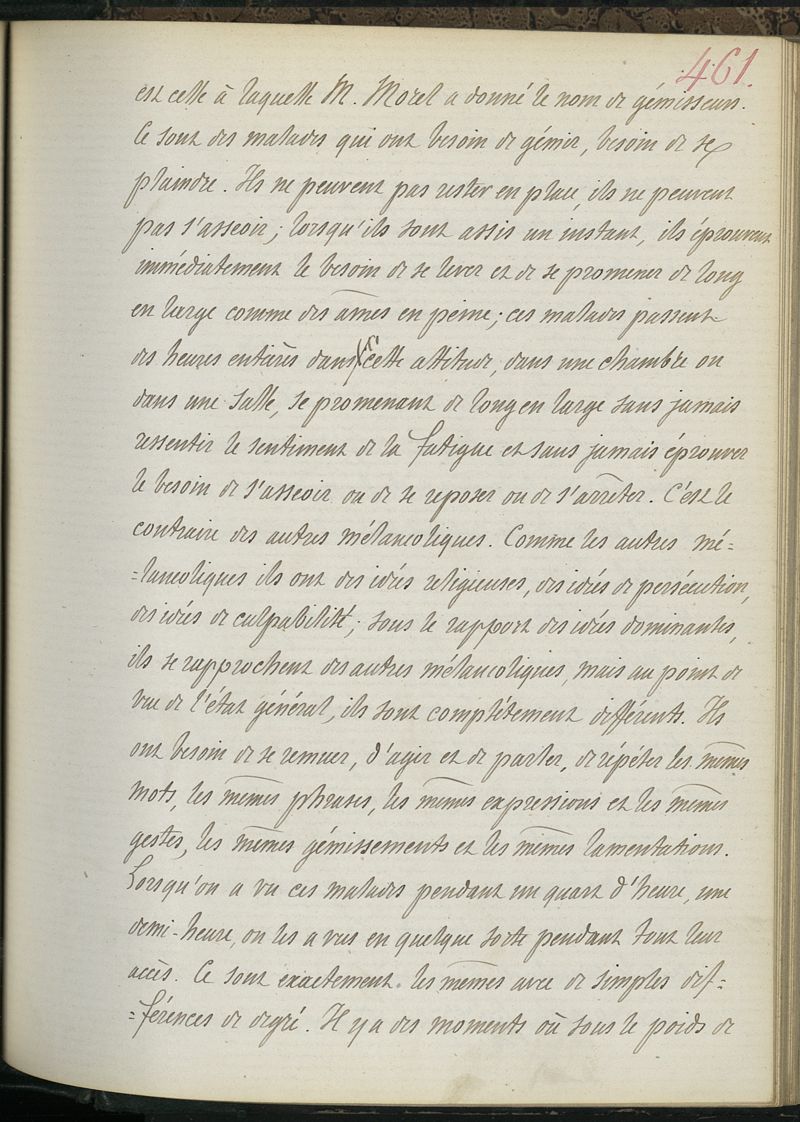 461.
est celle à laquelle M. Morel a donné le nom de gémisseurs.
Ce sont des malades qui ont besoin de gémir, besoin de se
plaindre. Ils ne peuvent pas rester en place, ils ne peuvent
pas s'asseoir; lorsqu'ils sont assis un instant, ils éprouvent
immédiatement le besoin de se lever et de se promener de long
en large comme des âmes en peine; ces malades passent
des heures entières dans cette attitude, dans une chambre ou
dans une salle, se promenant de long en large sans jamais
ressentir le sentiment de la fatigue et sans jamais éprouver
le besoin de s'asseoir ou de se reposer ou de s'arrêter. C'est le
contraire des autres mélancoliques. Comme les autres mé=
=lancoliques ils ont des idées religieuses, des idées de persécution,
des idées de culpabilité; sous le rapport des idées dominantes,
ils se rapprochent des autres mélancoliques, mais au point de
vue de l'état général, ils sont complètement différents. Ils
ont besoin de se remuer, d'agir et de parler, de répéter les mêmes
mots, les mêmes phrases, les mêmes expressions et les mêmes
gestes, les mêmes gémissements et les mêmes lamentations.
Lorsqu'on a vu ces malades pendant un quart d'heure, une
demi-heure, on les a vus en quelque sorte pendant tout leur
accès. Ce sont exactement les mêmes avec de simples dif=
=férences de degré. Il y a des moments où sous le poids de